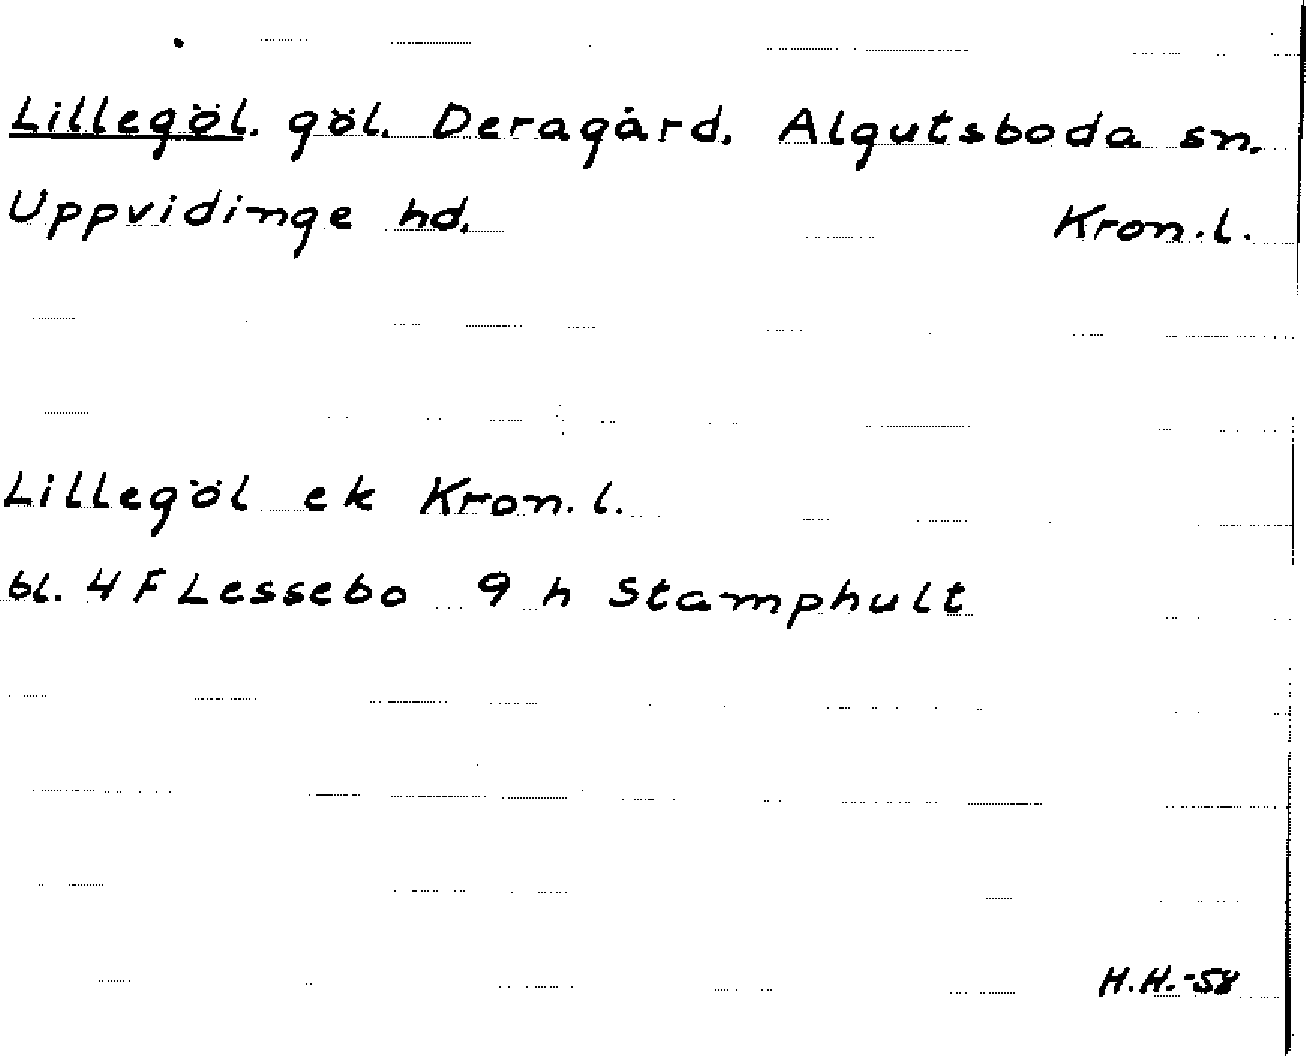 Lillegöl. göl. Deragård. Algutsboda sn.
Uppvidinge hd. Kron.l.
Lillegöl ek Kron.l.
bl. 4 F Lessebo 9 h Stamphult
H.H.-58